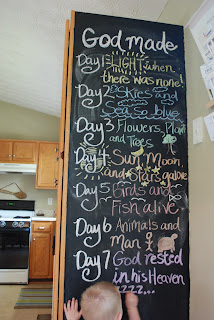 God made
Day 1=LIGHT when
there was none!
Day 2 skies and
Seas so blue
Day 3 Flowers, Plants
and Trees
Day 4 Sun, Moon,
and Stars galore
Day 5 Birds and
Fish alive
Day 6 Animals and
Man
Day 7 God rested
in his Heaven
zzzz...